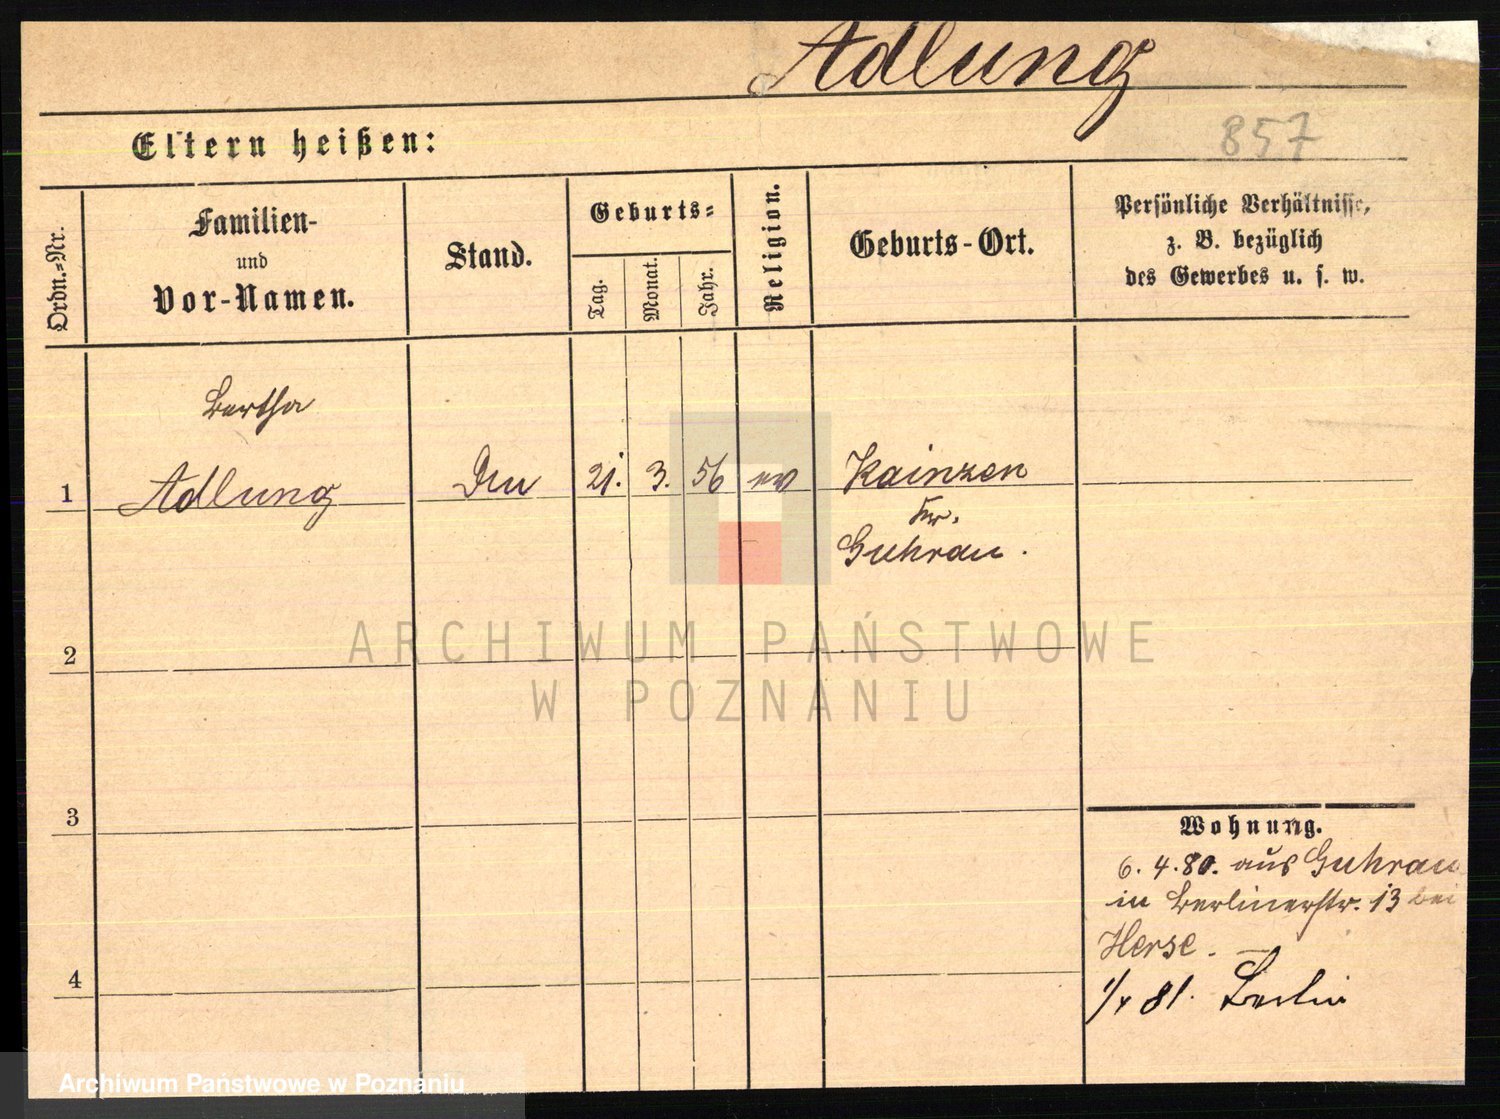 Adlung
857
Eltern heißen:
Ordn.=Nr.
Familien-
und
Vor-Namen.
Stand.
Geburts=
Tag.
Monat.
Jahr.
Religion.
Geburts-Ort.
Persönliche Verhältnisse,
z. B. bezüglich
des Gewerbes u. s. w.
Bertha
1 Adlung 21. 3. 56 ev Kainzen
Kr.
Guhrau.
2
3
4
Wohnung.
6. 4. 80. aus Guhrau
in Berlinerstr. 13 bei
Herse.
81. Berlin
ARCHIWUM PAŃSTWOWE
W POZNANIU
Archiwum Państwowe w Poznaniu